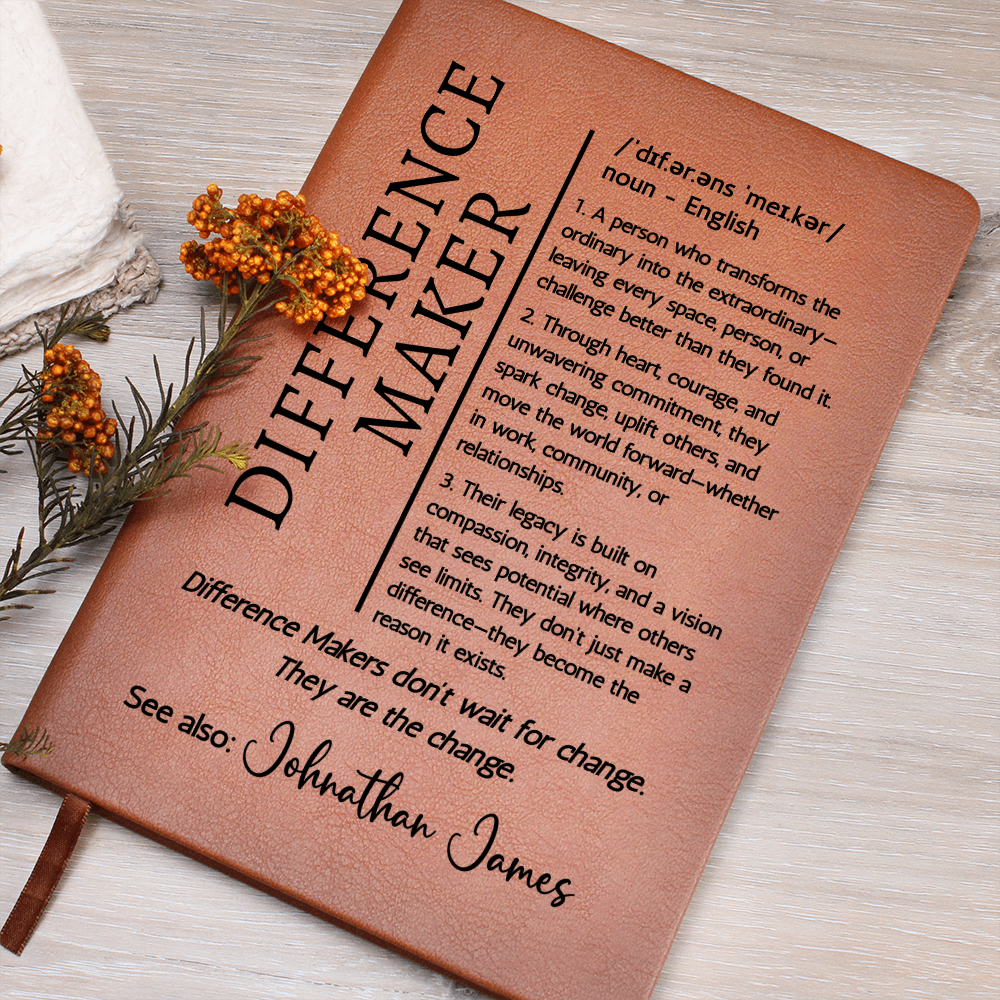 DIFFERENCE
MAKER
/ˈdɪf.ər.əns ˈmeɪ.kər/
noun - English
1. A person who transforms the
ordinary into the extraordinary—
leaving every space, person, or
challenge better than they found it.
2. Through heart, courage, and
unwavering commitment, they
spark change, uplift others, and
move the world forward—whether
in work, community, or
relationships.
3. Their legacy is built on
compassion, integrity, and a vision
that sees potential where others
see limits. They don't just make a
difference—they become the
reason it exists.
Difference Makers don't wait for change.
They are the change.
See also: Johnathan James